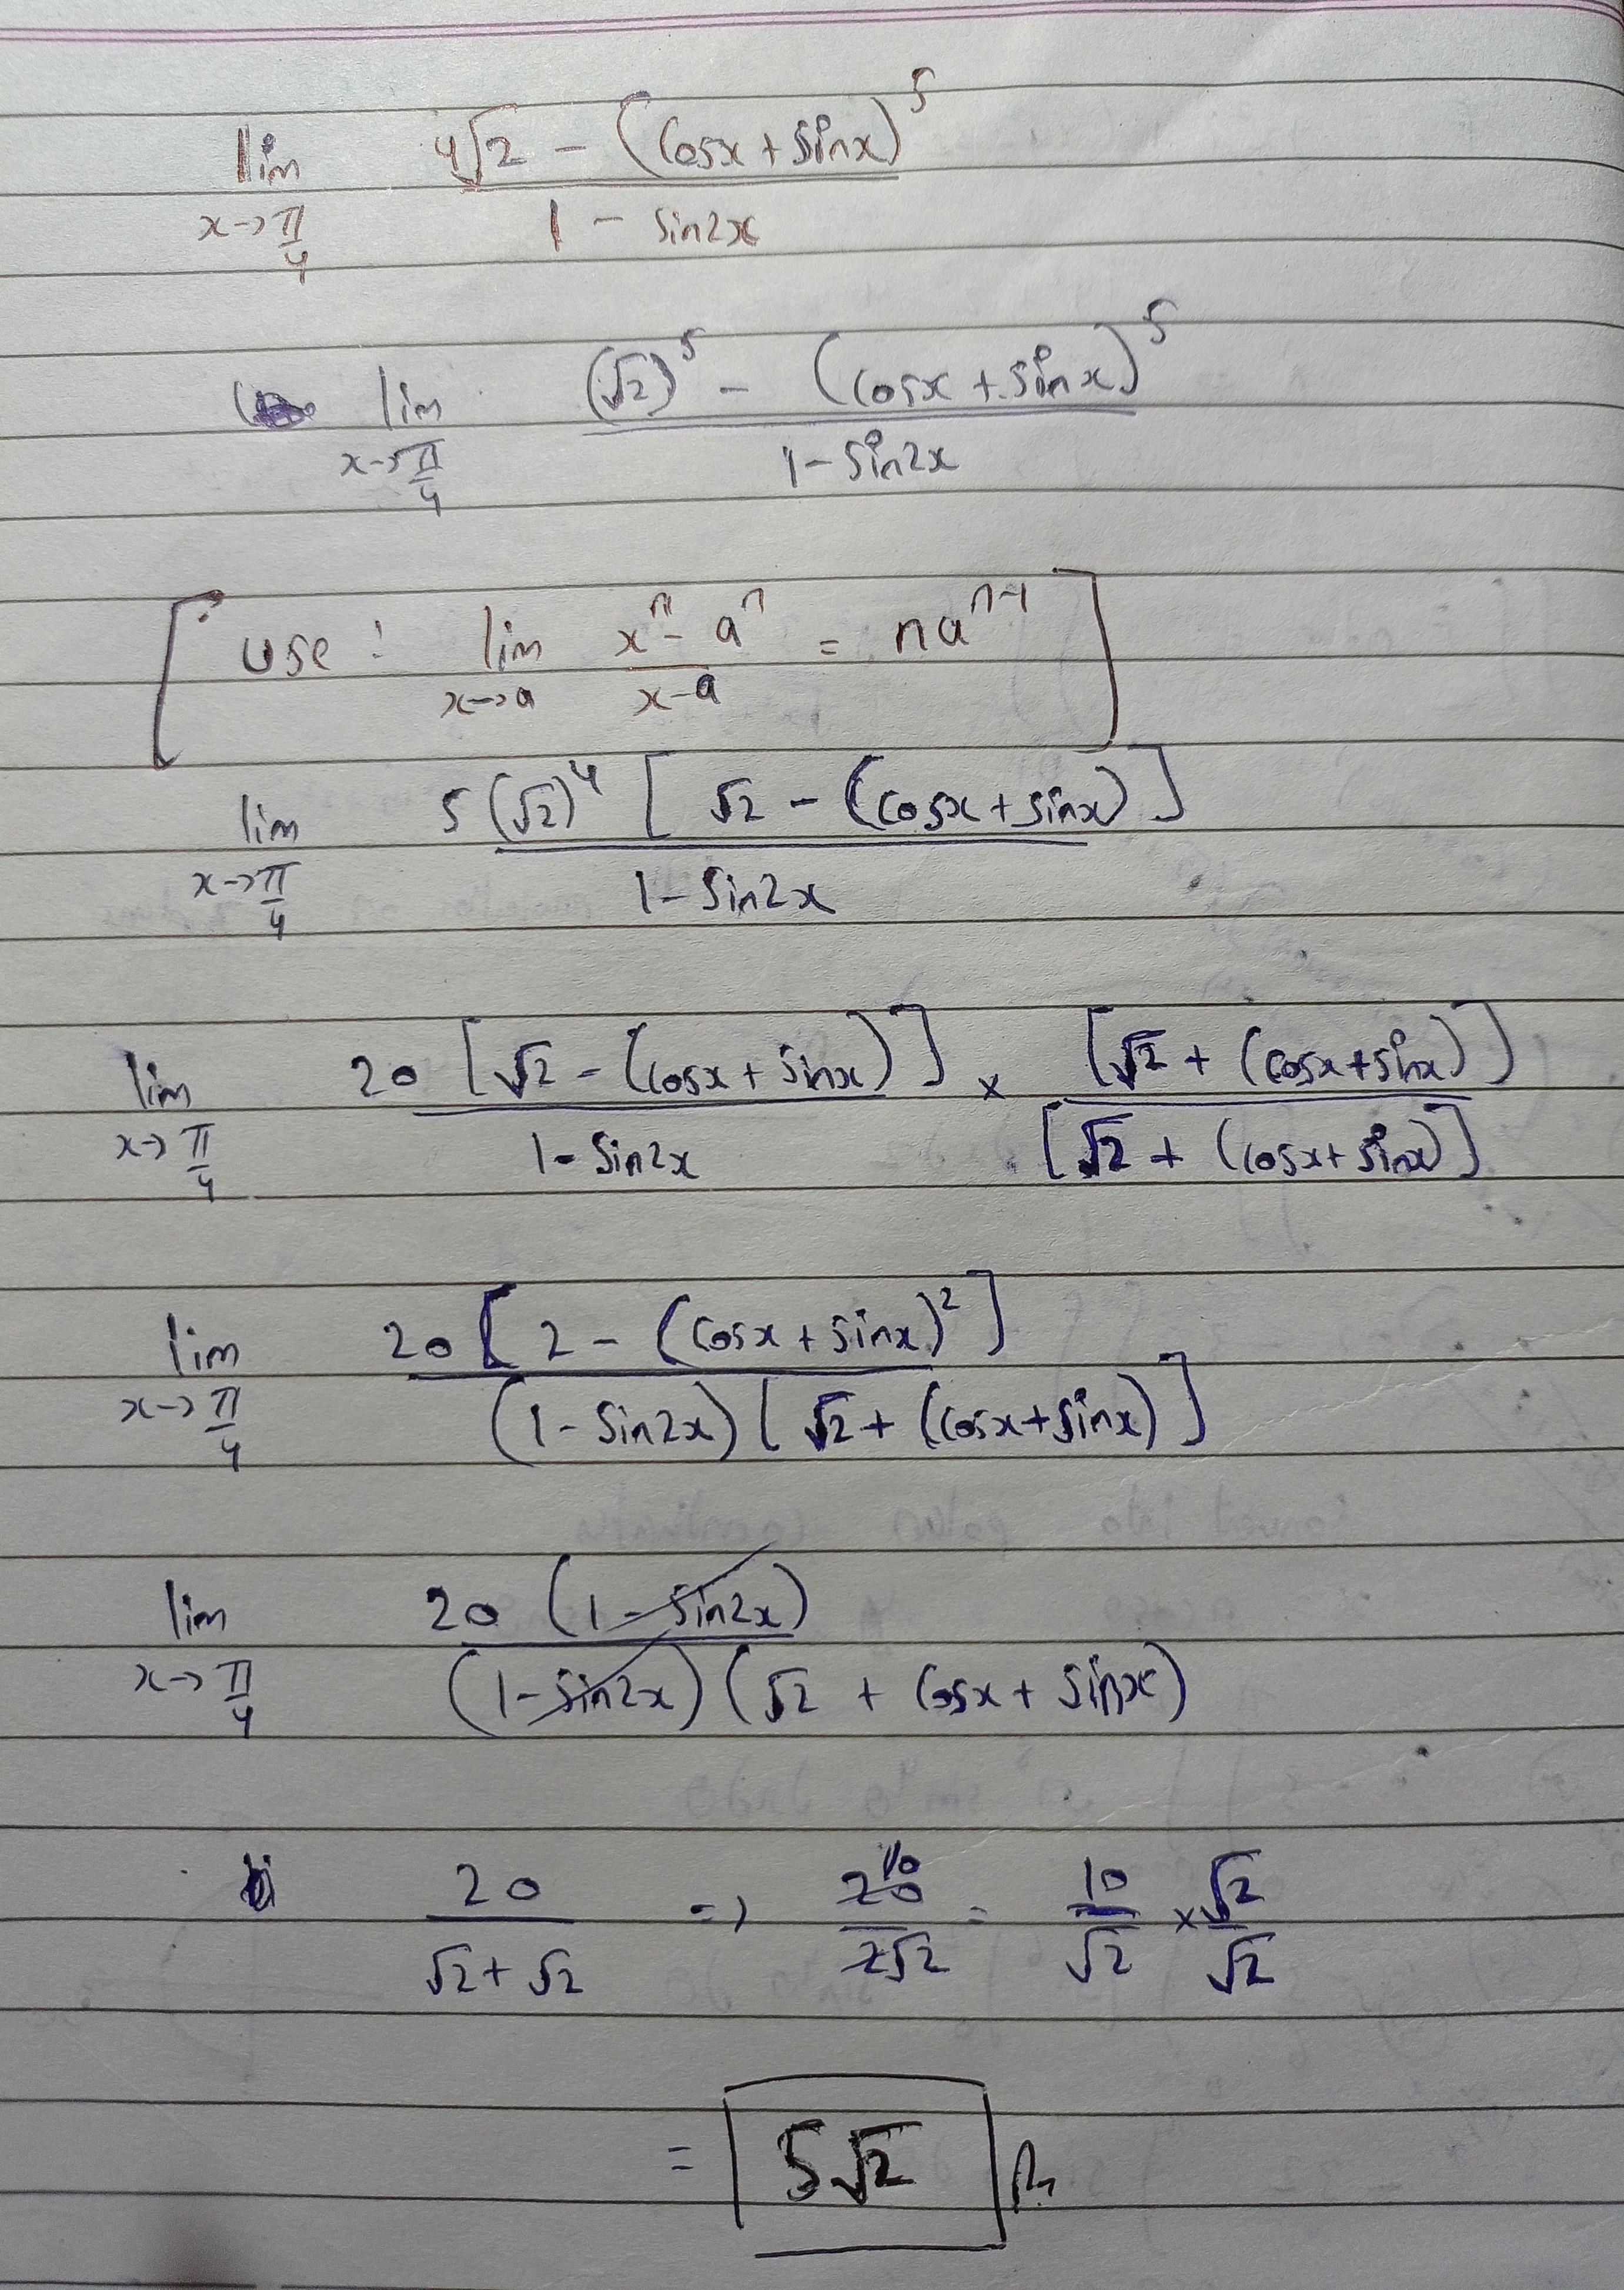 lim x→π/4 (4√2 - (cosx + sinx)^5) / (1 - sin2x)
lim x→π/4 ((√2)^5 - (cosx + sinx)^5) / (1 - sin2x)
[use : lim x→a (x^n - a^n) / (x - a) = na^(n-1)]
lim x→π/4 5(√2)^4 [√2 - (cosx + sinx)] / (1 - sin2x)
lim x→π/4 20 [√2 - (cosx + sinx)] / (1 - sin2x) × [√2 + (cosx + sinx)] / [√2 + (cosx + sinx)]
lim x→π/4 20 [2 - (cosx + sinx)^2] / (1 - sin2x) [√2 + (cosx + sinx)]
lim x→π/4 20 (1 - sin2x) / (1 - sin2x) (√2 + cosx + sinx)
20 / (√2 + √2) => 20 10 / 2√2 = 10/√2 × √2/√2
= 5√2